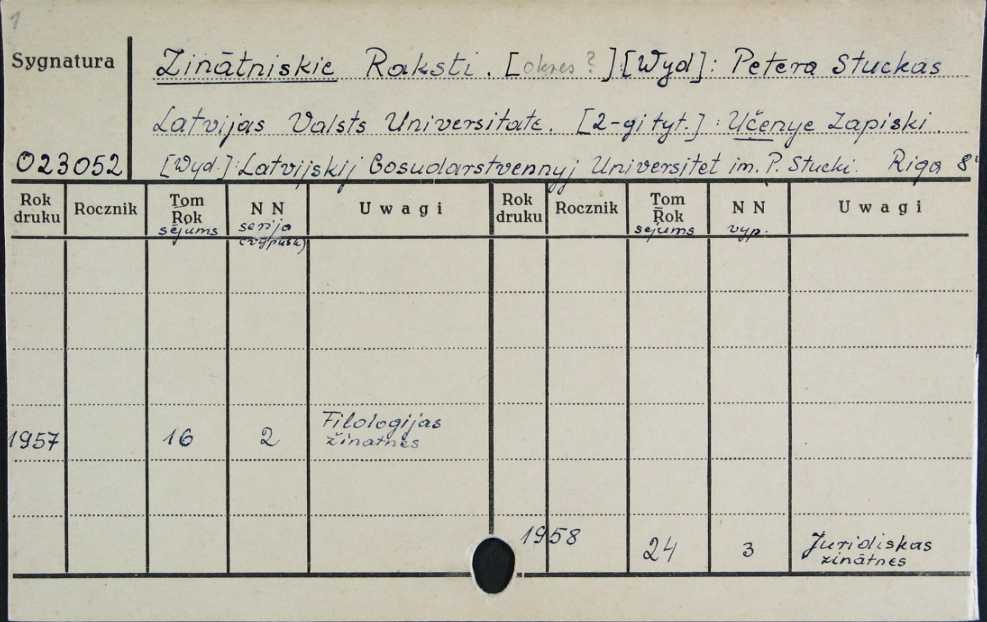 1
Sygnatura
Zinātniskie Raksti. [okres ?]:[Wyd]: Petera Stuckas
Latvijas Valsts Universitate. [2-gi tyt.]: Učenye Zapiski.
023052 [Wyd.]: Latvijskij Gosudarstvennyj Universitet im. P. Stucki. Riga 8°
Rok druku Rocznik Tom Rok sējums N N serija (vypusk) Uwagi Rok druku Rocznik Tom Rok sejums N N vyp. Uwagi
1957 16 2 Filologijas zinatnes
1958 24 3 Juridiskas zinātnes